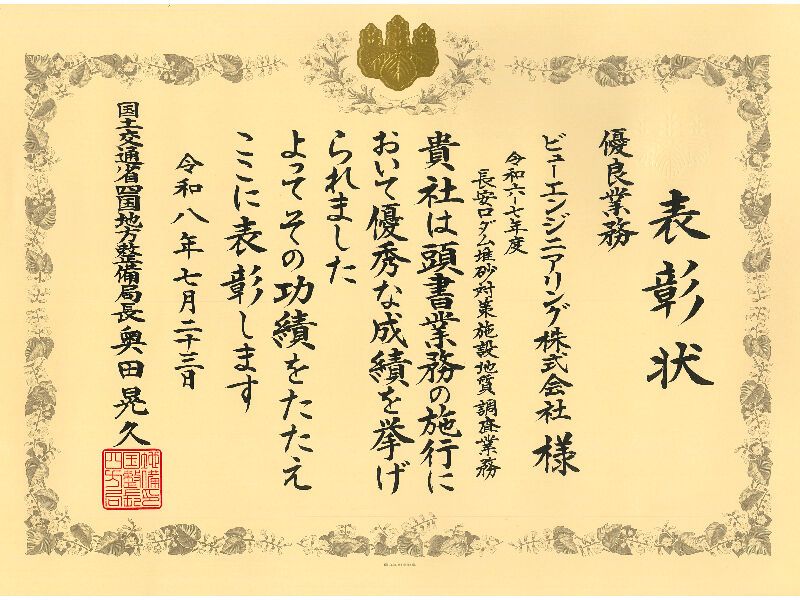 表彰状
優良業務
ビューエンジニアリング株式会社 様
令和六-七年度
長安口ダム堆砂対策施設地質調査業務
貴社は頭書業務の施行に
おいて優秀な成績を挙げ
られました
よってその功績をたたえ
ここに表彰します
令和八年七月二十三日
国土交通省四国地方整備局長 奥田晃久